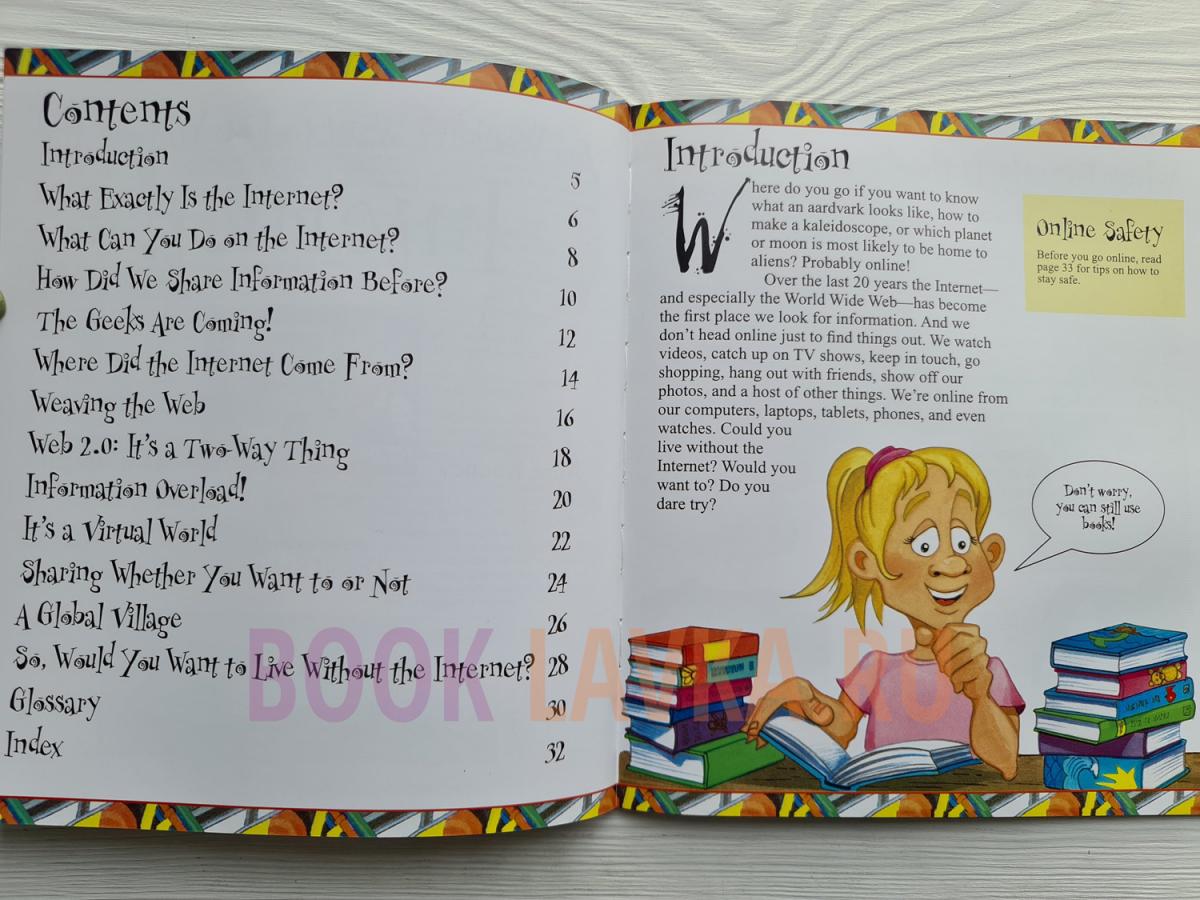 Contents
Introduction 5
What Exactly Is the Internet? 6
What Can You Do on the Internet? 8
How Did We Share Information Before? 10
The Geeks Are Coming! 12
Where Did the Internet Come From? 14
Weaving the Web 16
Web 2.0: It's a Two-Way Thing 18
Information Overload! 20
It's a Virtual World 22
Sharing Whether You Want to or Not 24
A Global Village 26
So, Would You Want to Live Without the Internet? 28
Glossary 30
Index 32
Introduction
Where do you go if you want to know
what an aardvark looks like, how to
make a kaleidoscope, or which planet
or moon is most likely to be home to
aliens? Probably online!
Over the last 20 years the Internet—
and especially the World Wide Web—has become
the first place we look for information. And we
don't head online just to find things out. We watch
videos, catch up on TV shows, keep in touch, go
shopping, hang out with friends, show off our
photos, and a host of other things. We're online from
our computers, laptops, tablets, phones, and even
watches. Could you
live without the
Internet? Would you
want to? Do you
dare try?
Online Safety
Before you go online, read
page 33 for tips on how to
stay safe.
Don't worry,
you can still use
books!
BOOK LAVKA.RU